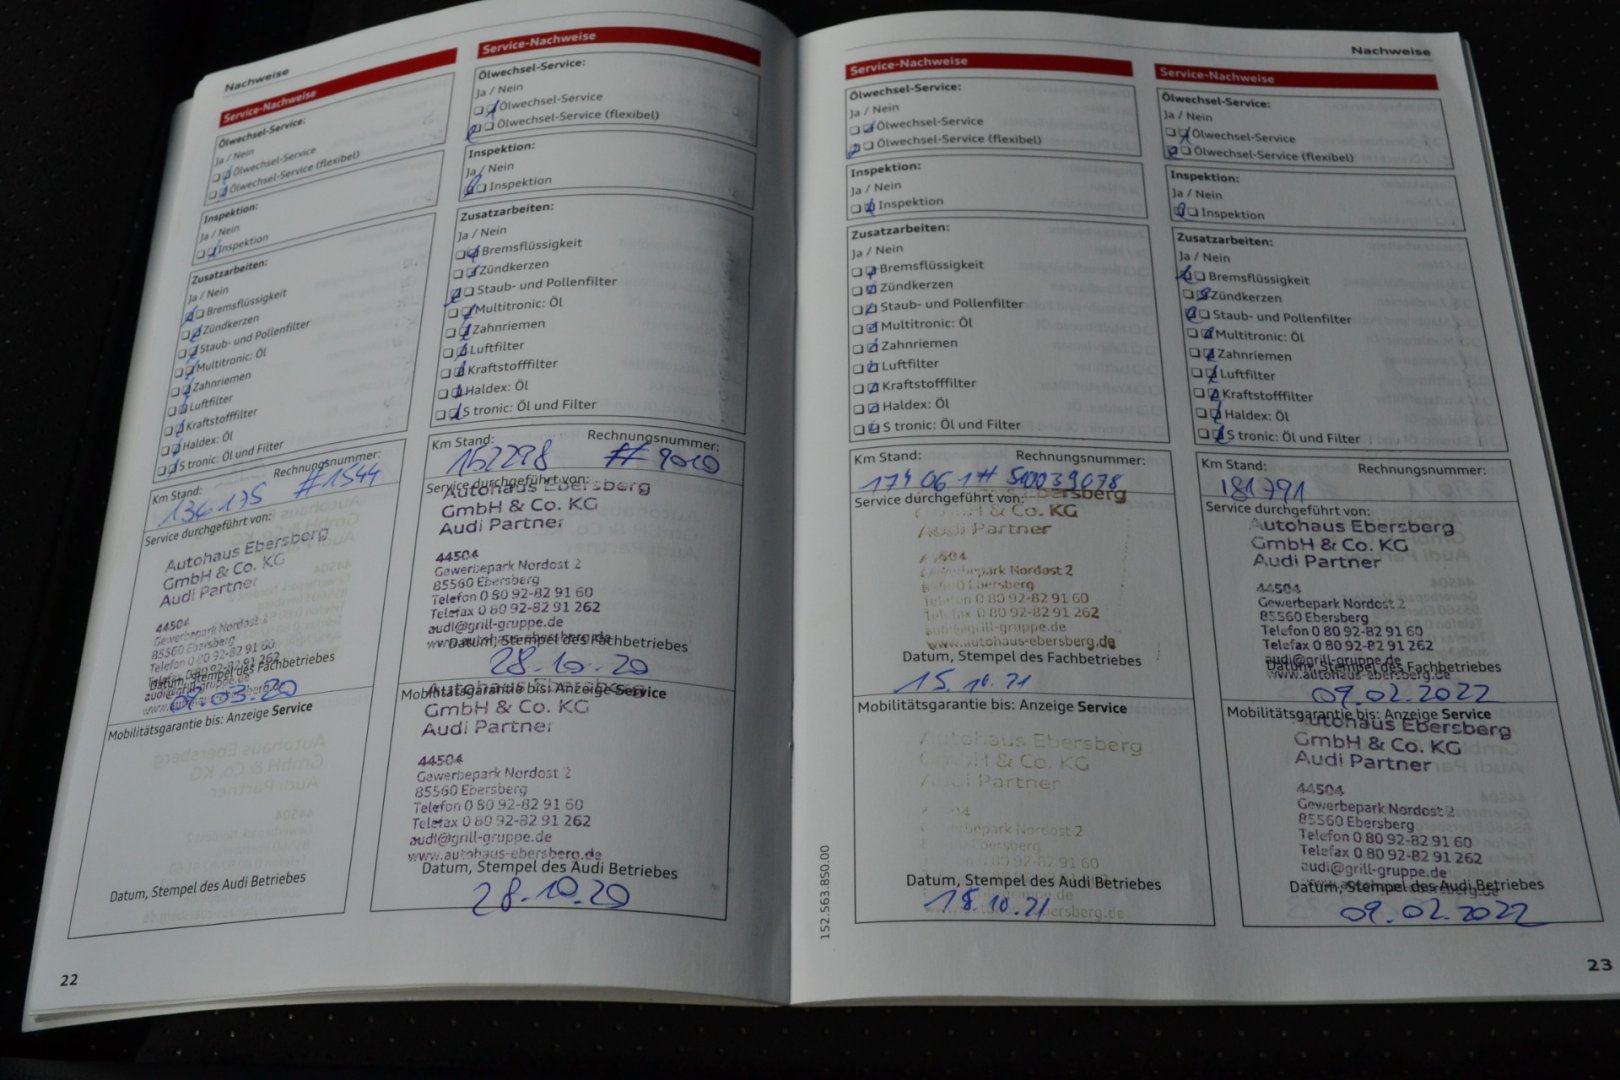 Nachweise
Service-Nachweise
Ölwechsel-Service:
Ja / Nein
Ölwechsel-Service
Ölwechsel-Service (flexibel)
Inspektion:
Ja / Nein
Inspektion
Zusatzarbeiten:
Ja / Nein
Bremsflüssigkeit
Zündkerzen
Staub- und Pollenfilter
Multitronic: Öl
Zahnriemen
Luftfilter
Kraftstofffilter
Haldex: Öl
S tronic: Öl und Filter
Km Stand: Rechnungsnummer:
136175 #1544
Service durchgeführt von:
Autohaus Ebersberg
GmbH & Co. KG
Audi Partner
44504
Gewerbepark Nordost 2
85560 Ebersberg
Telefon 0 80 92-82 91 60
Telefax 0 80 92-82 91 262
Datum, Stempel des Fachbetriebes
audi@grill-gruppe.de
03.20
Mobilitätsgarantie bis: Anzeige Service
Datum, Stempel des Audi Betriebes
22
Service-Nachweise
Ölwechsel-Service:
Ja / Nein
Ölwechsel-Service
Ölwechsel-Service (flexibel)
Inspektion:
Ja / Nein
Inspektion
Zusatzarbeiten:
Ja / Nein
Bremsflüssigkeit
Zündkerzen
Staub- und Pollenfilter
Multitronic: Öl
Zahnriemen
Luftfilter
Kraftstofffilter
Haldex: Öl
S tronic: Öl und Filter
Km Stand: Rechnungsnummer:
152278 #9010
Service durchgeführt von:
Autohaus Ebersberg
GmbH & Co. KG
Audi Partner
44504
Gewerbepark Nordost 2
85560 Ebersberg
Telefon 0 80 92-82 91 60
Telefax 0 80 92-82 91 262
audi@grill-gruppe.de
www.autohaus-ebersberg.de
Datum, Stempel des Fachbetriebes
28.10.20
Mobilitätsgarantie bis: Anzeige Service
Autohaus Ebersberg
GmbH & Co. KG
Audi Partner
44504
Gewerbepark Nordost 2
85560 Ebersberg
Telefon 0 80 92-82 91 60
Telefax 0 80 92-82 91 262
audi@grill-gruppe.de
www.autohaus-ebersberg.de
Datum, Stempel des Audi Betriebes
28.10.20
Nachweise
Service-Nachweise
Ölwechsel-Service:
Ja / Nein
Ölwechsel-Service
Ölwechsel-Service (flexibel)
Inspektion:
Ja / Nein
Inspektion
Zusatzarbeiten:
Ja / Nein
Bremsflüssigkeit
Zündkerzen
Staub- und Pollenfilter
Multitronic: Öl
Zahnriemen
Luftfilter
Kraftstofffilter
Haldex: Öl
S tronic: Öl und Filter
Km Stand: Rechnungsnummer:
174061 # 510039078
Service durchgeführt von:
Ebersberg
GmbH & Co. KG
Audi Partner
44504
Gewerbepark Nordost 2
85560 Ebersberg
Telefon 0 80 92-82 91 60
Telefax 0 80 92-82 91 262
audi@grill-gruppe.de
www.autohaus-ebersberg.de
Datum, Stempel des Fachbetriebes
15.10.21
Mobilitätsgarantie bis: Anzeige Service
Autohaus Ebersberg
GmbH & Co. KG
Audi Partner
Gewerbepark Nordost 2
Ebersberg
Telefon 0 80 92-82 91 60
Datum, Stempel des Audi Betriebes
18.10.21
152.563.850.00
Service-Nachweise
Ölwechsel-Service:
Ja / Nein
Ölwechsel-Service
Ölwechsel-Service (flexibel)
Inspektion:
Ja / Nein
Inspektion
Zusatzarbeiten:
Ja / Nein
Bremsflüssigkeit
Zündkerzen
Staub- und Pollenfilter
Multitronic: Öl
Zahnriemen
Luftfilter
Kraftstofffilter
Haldex: Öl
S tronic: Öl und Filter
Km Stand: Rechnungsnummer:
181791
Service durchgeführt von:
Autohaus Ebersberg
GmbH & Co. KG
Audi Partner
44504
Gewerbepark Nordost 2
85560 Ebersberg
Telefon 0 80 92-82 91 60
Telefax 0 80 92-82 91 262
audi@grill-gruppe.de
Datum, Stempel des Fachbetriebes
www.autohaus-ebersberg.de
09.02.2022
Mobilitätsgarantie bis: Anzeige Service
Autohaus Ebersberg
GmbH & Co. KG
Audi Partner
44504
Gewerbepark Nordost 2
85560 Ebersberg
Telefon 0 80 92-82 91 60
Telefax 0 80 92-82 91 262
audi@grill-gruppe.de
Datum, Stempel des Audi Betriebes
09.02.2022
23